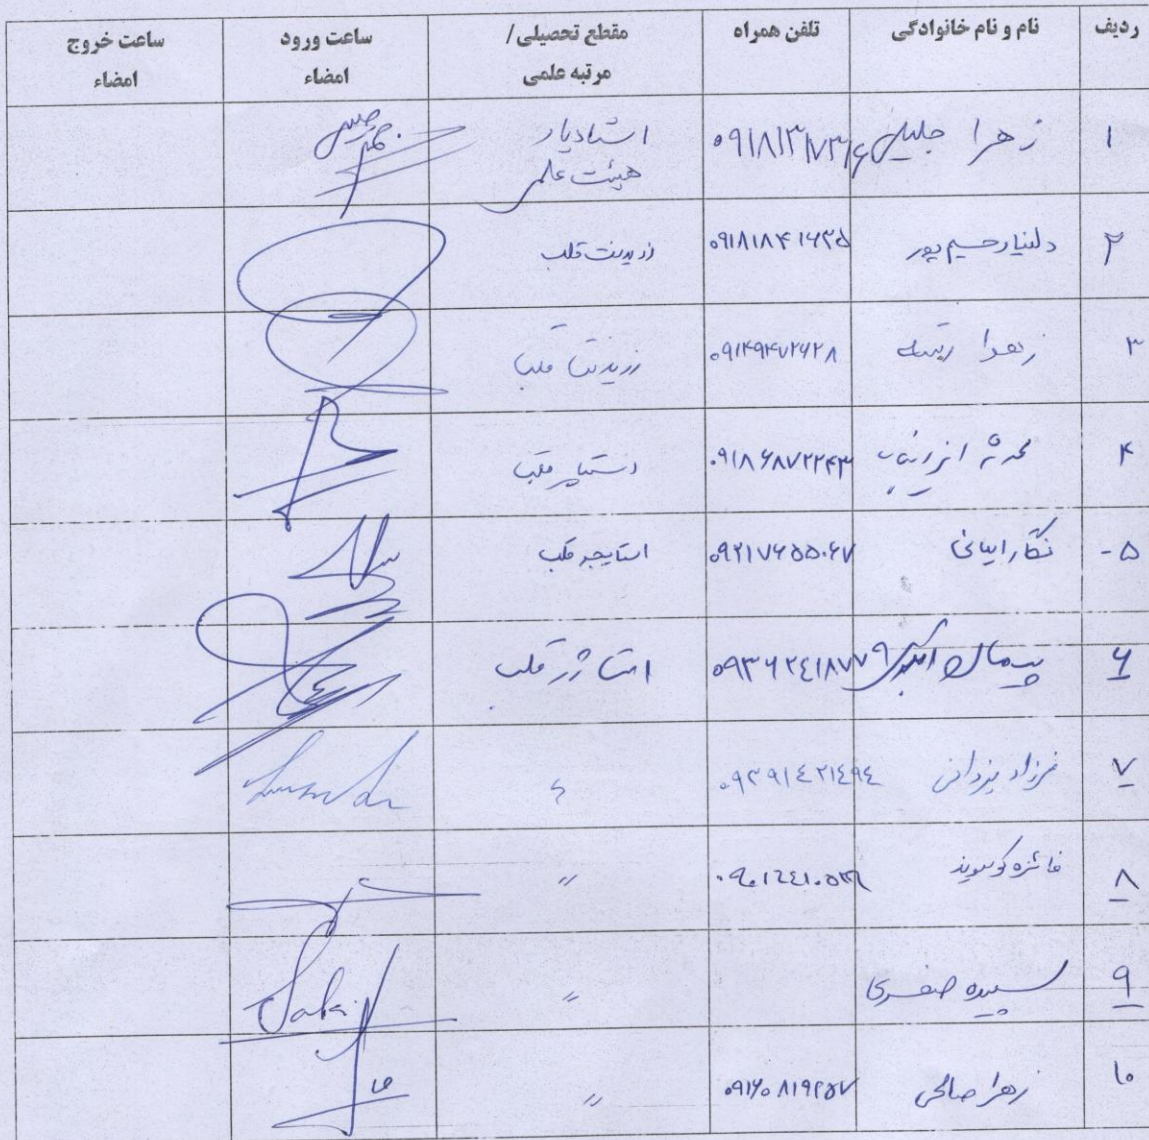 ردیف نام و نام خانوادگی تلفن همراه مقطع تحصیلی/ مرتبه علمی ساعت ورود امضاء ساعت خروج امضاء
۱ زهرا جلیلی ۰۹۱۸۱۳۱۷۳۱۶ استادیار هیئت علمی
۲ دلنیا رحیم پور ۰۹۱۸۱۸۴۱۶۳۵ رزیدنت قلب
۳ زهرا ۰۹۱۴۹۴۷۲۶۲۸ رزیدنت قلب
۴ ۰۹۱۸۶۸۷۲۲۴۳ قلب
۵- نگار ایمانی ۰۹۲۱۷۶۵۵۰۶۷ استایجر قلب
۶ پیمان اکبری ۰۹۳۶۲۴۱۸۷۷۹ استاژر قلب
۷ فرزاد یزدانی ۰۹۳۹۱۴۲۱۴۹۴ ״
۸ فائزه ״
۹ سپیده صفری ״
۱۰ زهرا صالحی ۰۹۱۶۰۸۱۹۲۵۷ ״